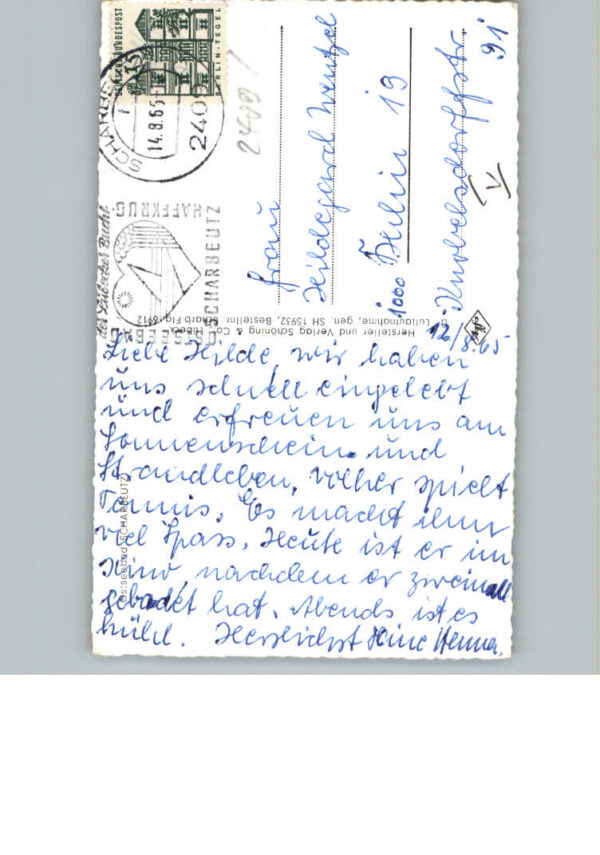 12/8.65
Liebe Hilde, wir haben
uns schnell eingelebt
und erfreuen uns am
Sonnenschein und
Strandleben. Volker spielt
Tennis. Es macht ihm
viel Spass. Heute ist er im
Kino, nachdem er zweimal
gebadet hat. Abends ist es
kühl. Herzlichst Deine Henna.
Frau
Hildegard Wentzel
1000 Berlin 19
Knobelsdorffstr.
91
V
2409!
DEUTSCHE BUNDESPOST
15
BERLIN-TEGEL
SCHARBEUTZ
14.8.65
2409
der Lübecker Bucht
OSTSEEBAD
SCHARBEUTZ
HAFFKRUG
Hersteller und Verlag Schöning & Co., Lübeck
Luftaufnahme, gen. SH 15932, Bestellnr. Scharb Flg. 6912
Ostseebad SCHARBEUTZ